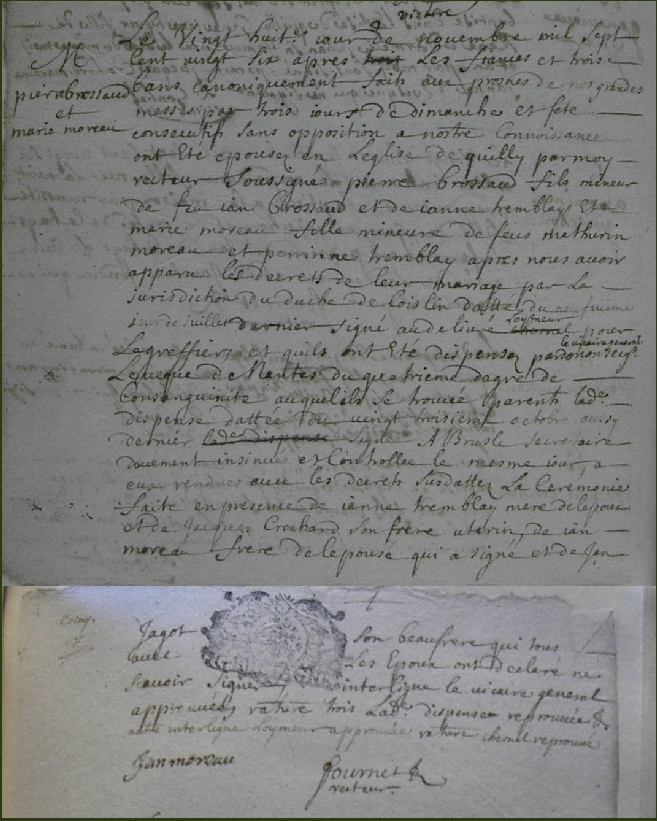 M
pierrebrossaud
et
marie moreau
Le Vingt huit.e iour de novembre mil sept
cent vingt six apres trois Les fiances et trois
bans canoniquement faits aux prosnes de nos grandes
messes par trois iours de dimanche et fete
consecutifs sans opposition a nostre Connoissance
ont Eté epousez en Leglise de quilly par moy
recteur Soussigné pierre brossaud fils mineur
de feu ian Brossaud et de ianne tremblay Et
marie moreau fille mineure de feus mathurin
moreau et perrinne tremblay apres nous avoir
apparu les decrets de leur mariage par La
Jurisdiction du duché de Coislin dattez du neufvieme
iour de Juillet dernier signé au delivré Loymeur chesnel pour
Le greffier, et quils ont Eté dispensez par le vicaire general
Leveque de Nantes du quatrieme degré de
Consanguinité auquel ils se trouvé parents lad.e
dispense dattée du vingt troisieme octobre aussy
dernier lad.e dispense signé A Brusle secretaire
duement insinuée et Controllée le meme iour, a
eux rendues avec les decrets susdattez La Ceremonie
faite en presence de ianne tremblay mere de lepoux
et de Jacques Crochard son frere uterin, de ian
moreau frere de lepouse qui a signé et de Jan
Jagot son beaufrere qui tous
avec Les Epoux ont declaré ne
scavoir signer interligne le vicaire general
approuvée, rature trois Lad.e dispense reprouvée &
autre interligne Loymeur approuvée rature chesnel reprouvé
Janmoreau
fournet
recteur